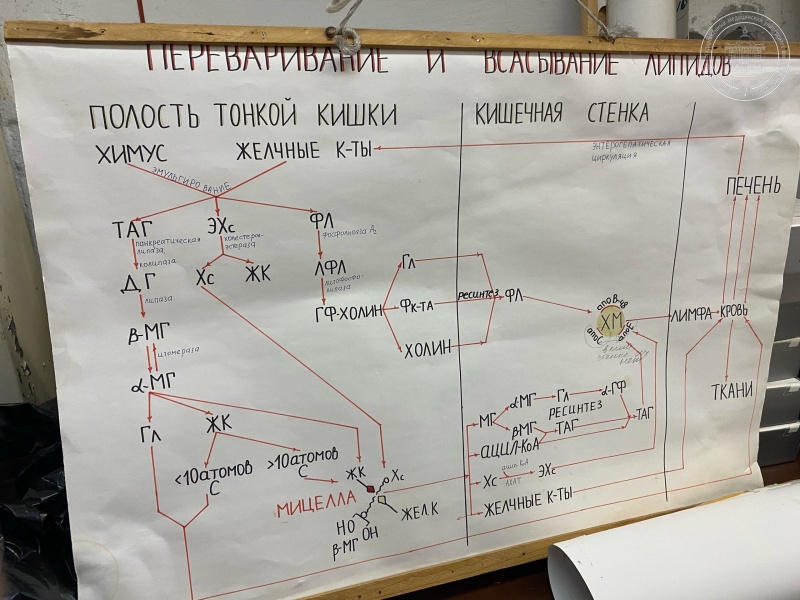 ПЕРЕВАРИВАНИЕ И ВСАСЫВАНИЕ ЛИПИДОВ
ПОЛОСТЬ ТОНКОЙ КИШКИ
КИШЕЧНАЯ СТЕНКА
ХИМУС
ЖЕЛЧНЫЕ К-ТЫ
ЭНТЕРОГЕПАТИЧЕСКАЯ
ЦИРКУЛЯЦИЯ
ЭМУЛЬГИРОВАНИЕ
ПЕЧЕНЬ
ТАГ
ЭХс
ФЛ
панкреатическая
липаза,
колипаза
холестерол-
эстераза
фосфолипаза А2
ДГ
Хс
ЖК
ЛФЛ
лизофосфо-
липаза
липаза
ГФ-ХОЛИН
Гл
Фк-ТА
ХОЛИН
РЕСИНТЕЗ
ФЛ
апоВ-48
ХМ
апоС
апоЕ
ЛИМФА
КРОВЬ
ТКАНИ
β-МГ
изомераза
α-МГ
Гл
ЖК
<10 атомов
С
>10 атомов
С
МИЦЕЛЛА
ЖК
Хс
ЖЕЛ.К
НО
ОН
β-МГ
МГ
α-МГ
Гл
α-ГФ
РЕСИНТЕЗ
β-МГ
ТАГ
ТАГ
АЦИЛ-КоА
Хс
АХАТ
ЭХс
ЖЕЛЧНЫЕ К-ТЫ